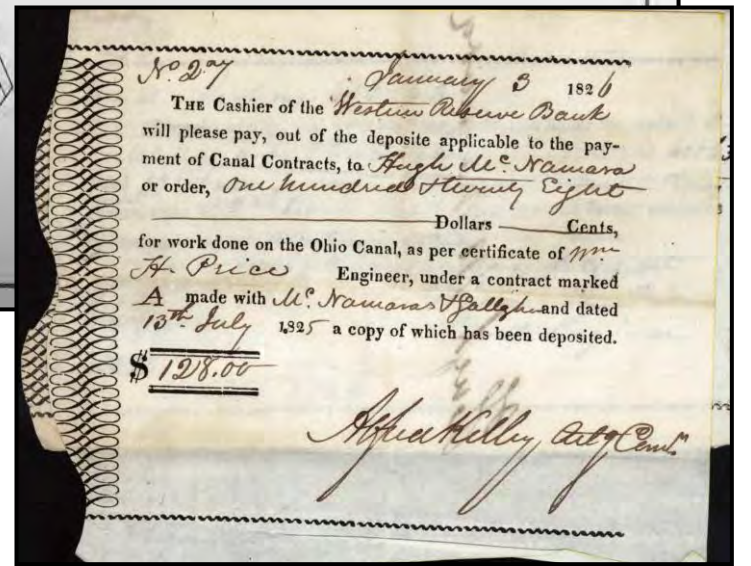 No. 27 January 3 1826
THE Cashier of the Western Reserve Bank
will please pay, out of the deposite applicable to the pay-
ment of Canal Contracts, to Hugh Mc. Namara
or order, One hundred & twenty Eight
Dollars Cents,
for work done on the Ohio Canal, as per certificate of Wm
H. Price Engineer, under a contract marked
A made with Mc. Namaras & Gallgher and dated
13th July 1825 a copy of which has been deposited.
$ 128.00
Alfred Kelley Actg Comr